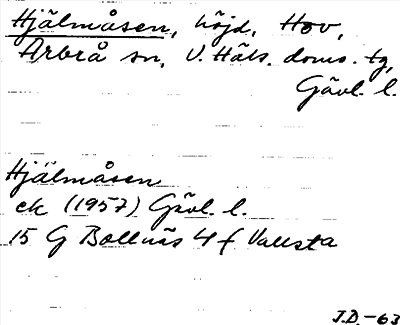 Hjälmåsen, höjd, Hov,
Arbrå sn, V. Häls. doms. tg,
Gävl. l.
Hjälmåsen
ek (1957) Gävl. l.
15 G Bollnäs 4 f Vallsta
J.D.-63